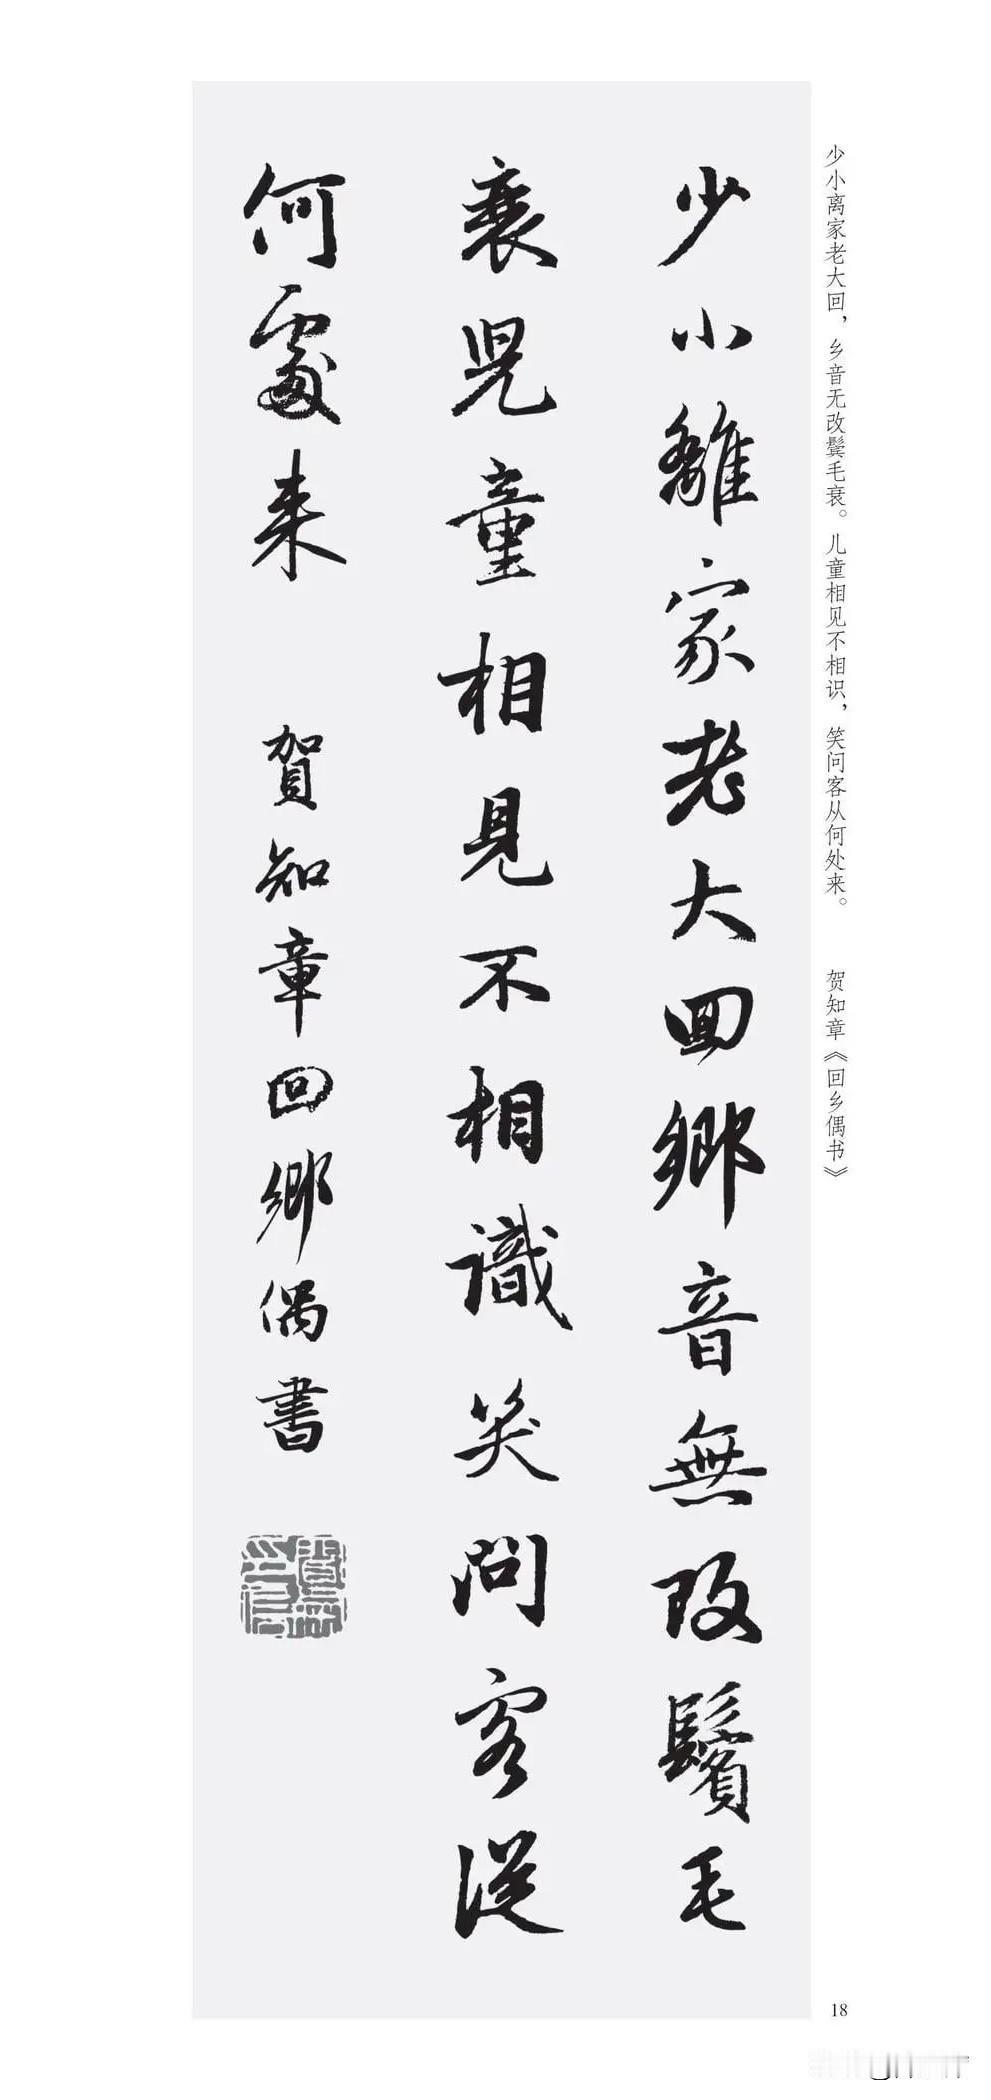 少小离家老大回，乡音无改鬓毛衰。儿童相见不相识，笑问客从何处来。　贺知章《回乡偶书》
少小離家老大回鄉音無改鬢毛
衰兒童相見不相識笑問客從
何處来　賀知章回鄉偶書
18